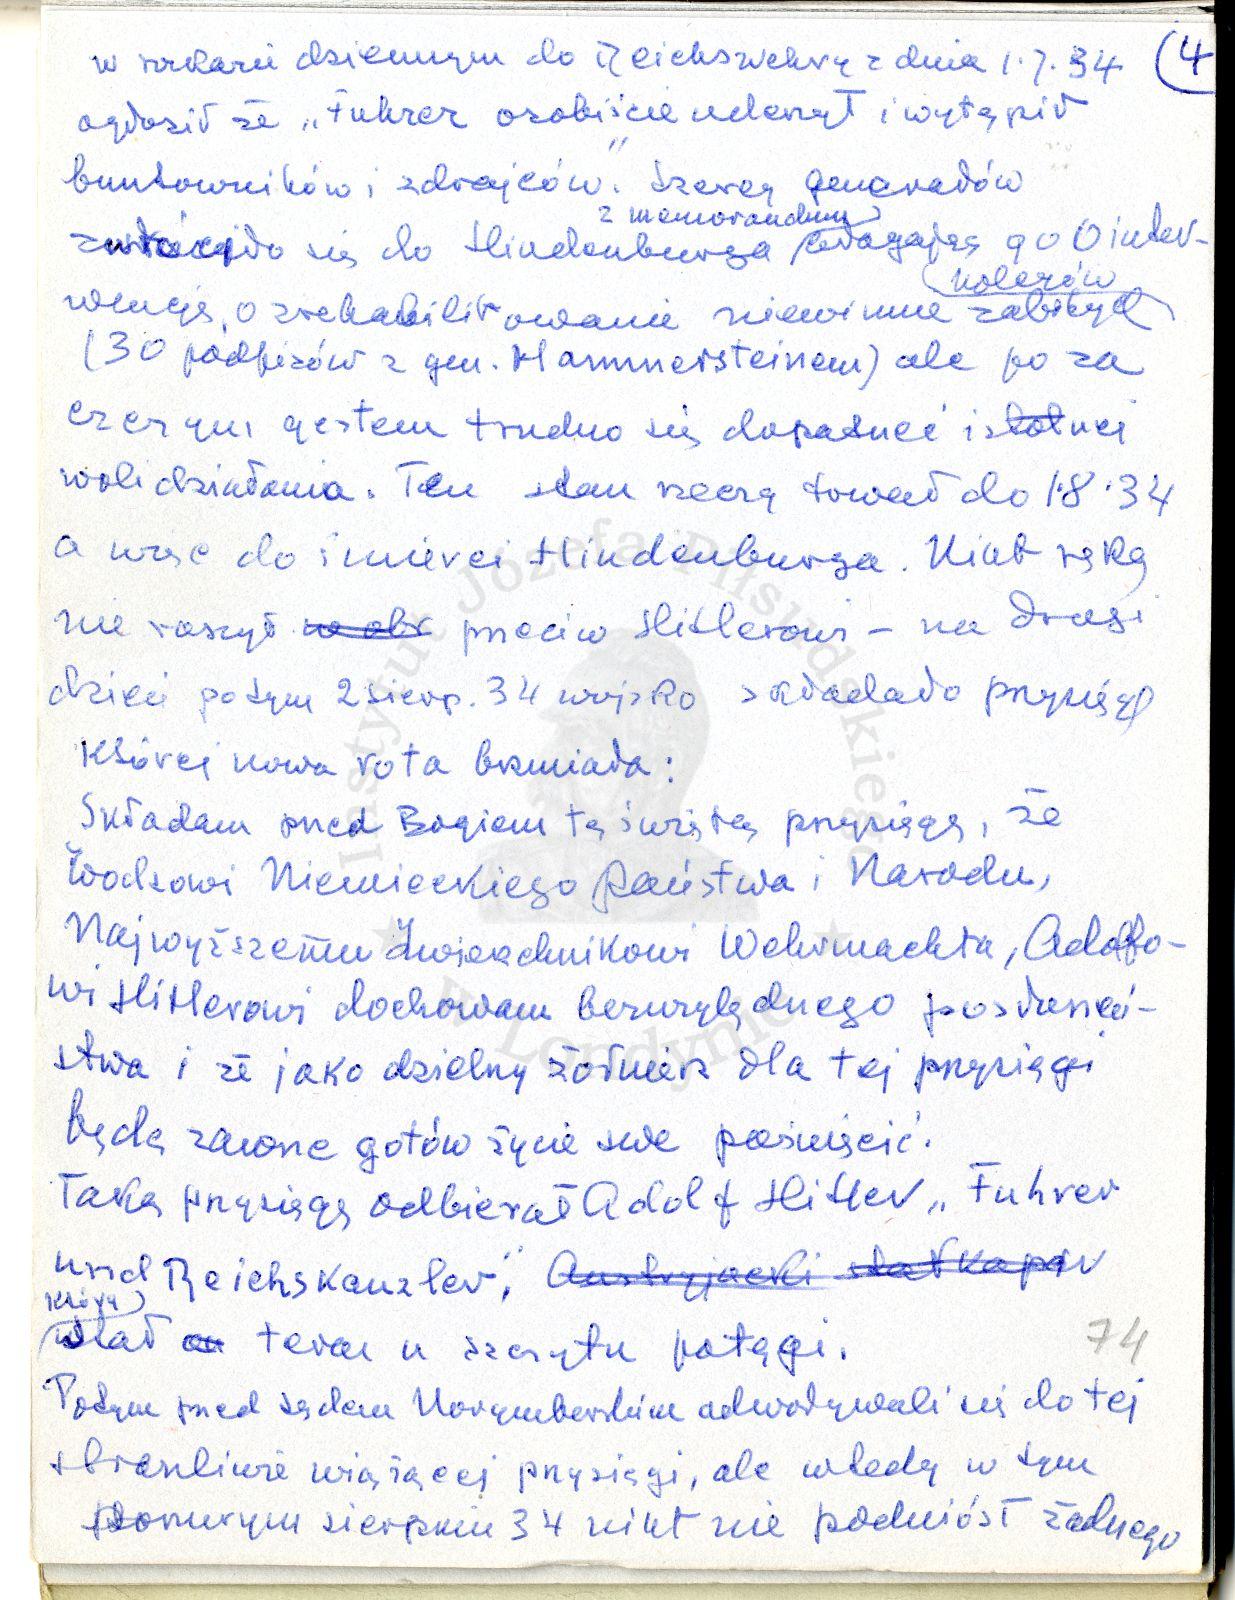 w rozkazie dziennym do Reichswehry z dnia 1.7.34 (4
ogłosił że „Fuhrer osobiście uderzył i wytępił
buntowników i zdrajców." Szereg generałów
z memorandum
zwróciło się do Hindenburga błagając go o inter-
kolegów
wencję, o zrehabilitowanie niewinnie zabitych
(30 podpisów z gen. Hammersteinem) ale po za
czczym gestem trudno się dopatrzeć istotnej
woli działania. Ten stan rzeczy trwał do 1.8.34
a więc do śmierci Hindenburga. Nikt ręką
nie ruszył w obr przeciw Hitlerowi – na drugi
dzień potym 2 sierp. 34 wojsko składało przysięgę
której nowa rota brzmiała:
Składam przed Bogiem tę świętą przysięgę, że
Wodzowi Niemieckiego Państwa i Narodu,
Najwyższemu Zwierzchnikowi Wehrmachta, Adolfo-
wi Hitlerowi dochowam bezwzględnego posłuszeń-
stwa i że jako dzielny żołnierz dla tej przysięgi
będę zawsze gotów życie swe poświęcić.
Taką przysięgę odbierał Adolf Hitler „Fuhrer
und Reichskanzler", Austryjacki
który
stał teraz u szczytu potęgi.
74
Potym przed sądem Norymberskim odwoływali się do tej
straszliwie wiążącej przysięgi, ale wtedy w tym
ponurym sierpniu 34 nikt nie podniósł żadnego
Instytut Józefa Piłsudskiego
w Londynie